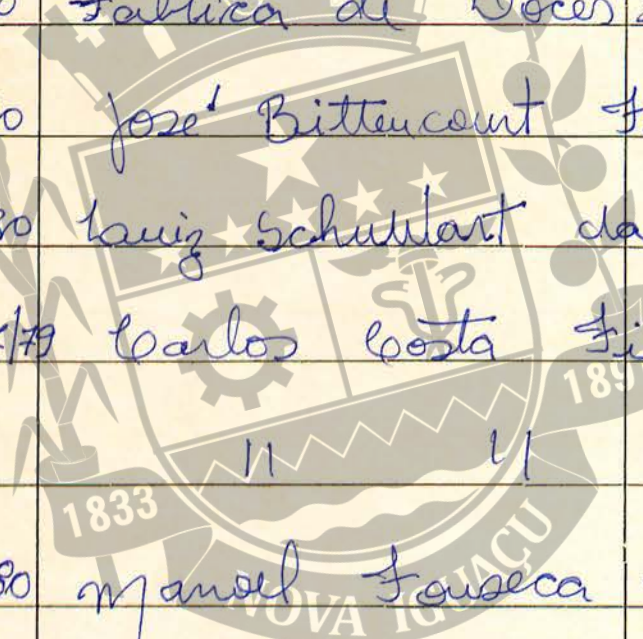 Fabrica de Doces
0 José Bittencourt F
80 Luiz Schuwart da
/79 Carlos Costa Fi
189
" "
1833
80 Manoel Fonseca
NOVA IGUAÇU